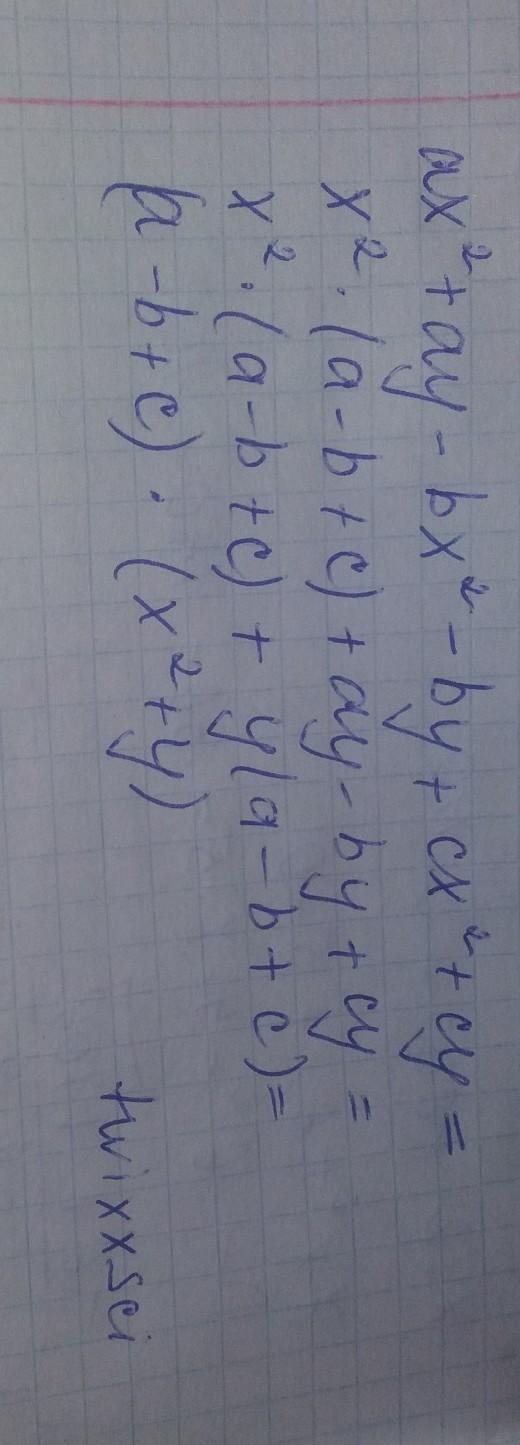 ax² + ay - bx² - by + cx² + cy =
x² · (a - b + c) + ay - by + cy =
x² · (a - b + c) + y(a - b + c) =
(a - b + c) · (x² + y)
twixxsci